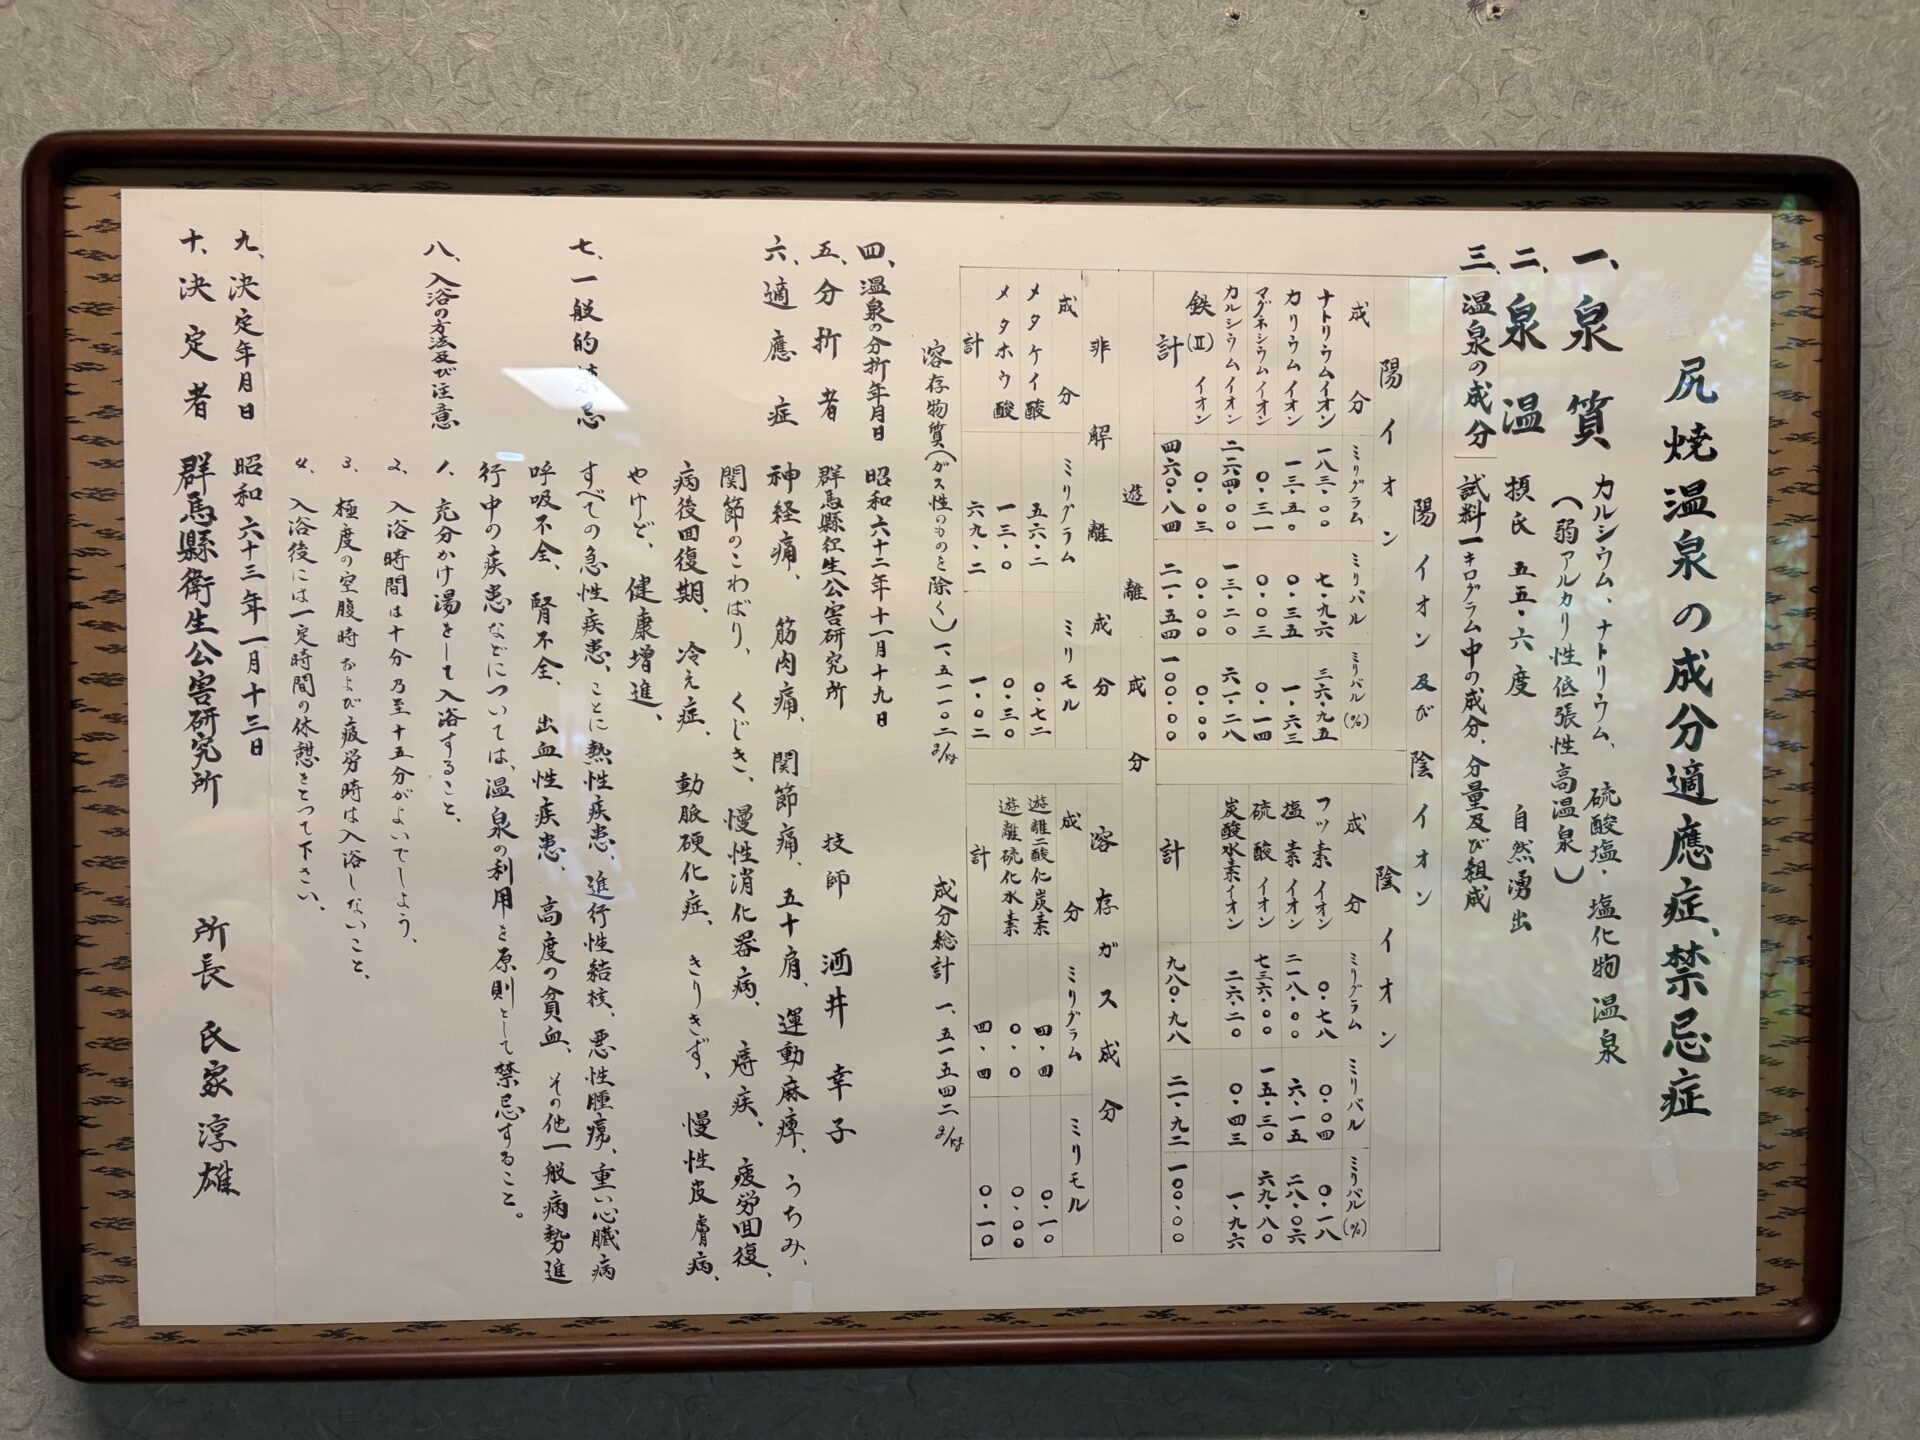 尻焼温泉の成分適應症、禁忌症
一、泉質 カルシウム、ナトリウム、硫酸塩・塩化物温泉
(弱アルカリ性低張性高温泉)
二、泉温 摂氏 五五・六度 自然湧出
三、温泉の成分 試料一キログラム中の成分、分量及び組成
陽イオン及び陰イオン
陽イオン
成分 ミリグラム ミリバル ミリバル(%)
ナトリウムイオン 一八三・〇〇 七・九六 三六・九五
カリウムイオン 一三・五〇 〇・三五 一・六三
マグネシウムイオン 〇・三一 〇・〇三 〇・一四
カルシウムイオン 二六四・〇〇 一三・二〇 六一・二八
鉄(Ⅱ)イオン 〇・〇三 〇・〇〇 〇・〇〇
計 四六〇・八四 二一・五四 一〇〇・〇〇
陰イオン
成分 ミリグラム ミリバル ミリバル(%)
フッ素イオン 〇・七八 〇・〇四 〇・一八
塩素イオン 二一八・〇〇 六・一五 二八・〇六
硫酸イオン 七三六・〇〇 一五・三〇 六九・八〇
炭酸水素イオン 二六・二〇 〇・四三 一・九六
計 九八〇・九八 二一・九二 一〇〇・〇〇
遊離成分
非解離成分
成分 ミリグラム ミリモル
メタケイ酸 五六・二 〇・七二
メタホウ酸 一三・〇 〇・三〇
計 六九・二 一・〇二
溶存ガス成分
成分 ミリグラム ミリモル
遊離二酸化炭素 四・四 〇・一〇
遊離硫化水素 〇・〇 〇・〇〇
計 四・四 〇・一〇
溶存物質(ガス性のものを除く)一、五一一〇二g/kg 成分総計 一、五一五四二g/kg
四、温泉の分折年月日 昭和六十二年十一月十九日
五、分折者 群馬縣衛生公害研究所 技師 酒井幸子
六、適應症 神経痛、筋肉痛、関節痛、五十肩、運動麻痺、うちみ、
関節のこわばり、くじき、慢性消化器病、痔疾、疲労回復、
病後回復期、冷え症、動脈硬化症、きりきず、慢性皮膚病、
やけど、健康増進、
七、一般的禁忌 すべての急性疾患、ことに熱性疾患、進行性結核、悪性腫瘍、重い心臓病
呼吸不全、腎不全、出血性疾患、高度の貧血、その他一般病勢進
行中の疾患などについては、温泉の利用を原則として禁忌すること。
八、入浴の方法及び注意 1、充分かけ湯をして入浴すること、
2、入浴時間は十分乃至十五分がよいでしよう、
3、極度の空腹時および疲労時は入浴しないこと、
4、入浴後には一定時間の休憩をとつて下さい、
九、決定年月日 昭和六十三年一月十三日
十、決定者 群馬縣衛生公害研究所 所長 氏家淳雄